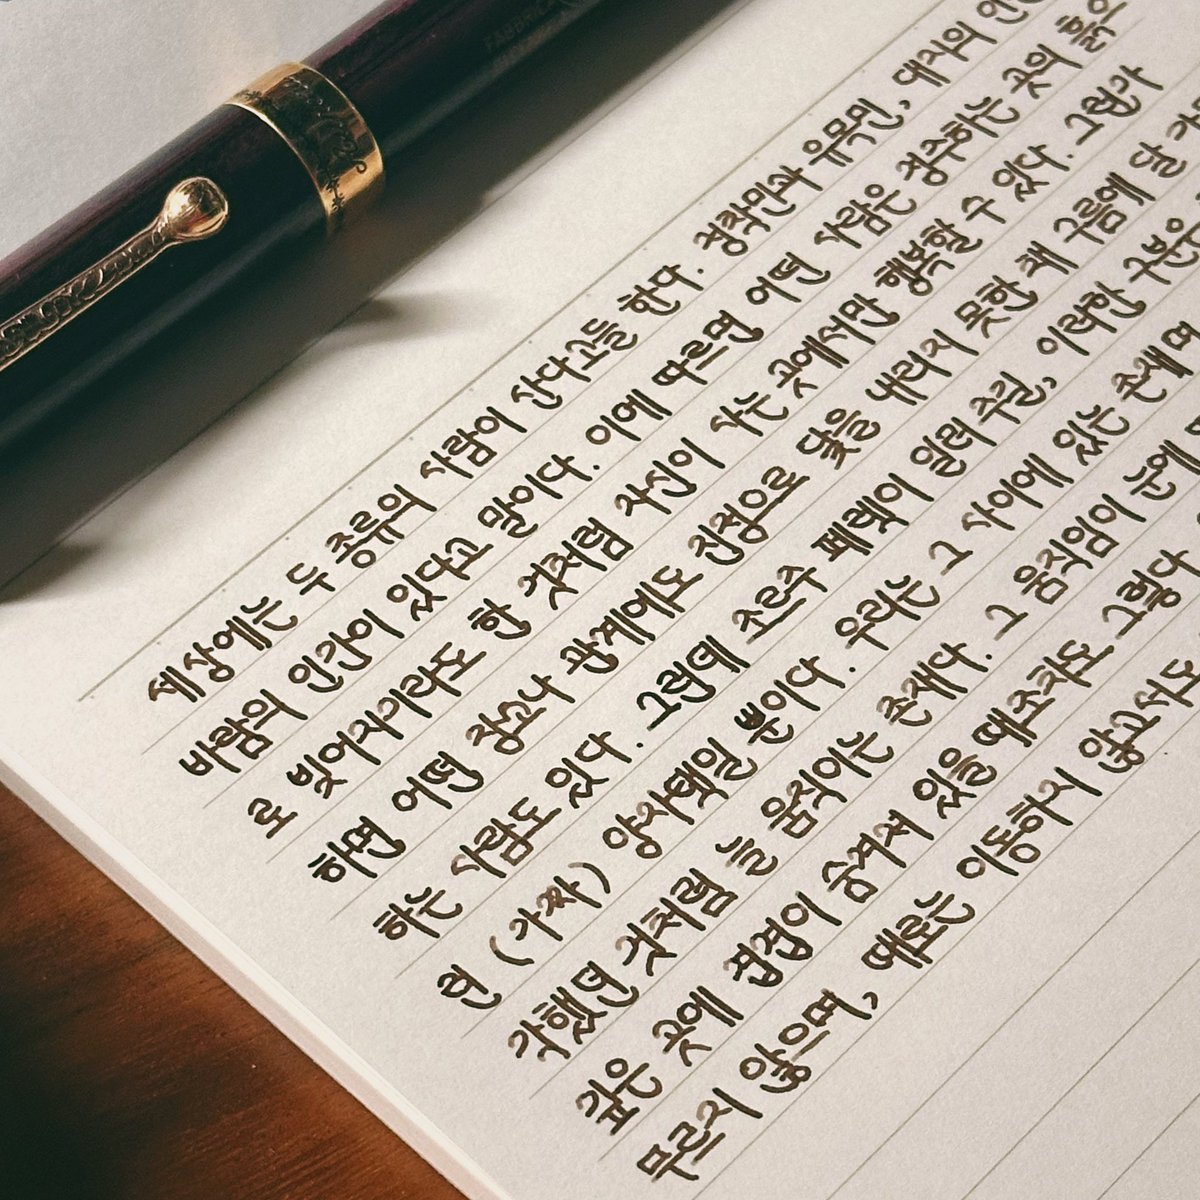 FABBRICA
세상에는 두 종류의 사람이 산다고들 한다. 정착민과 유목민, 대지의
바람의 인간이 있다고 말이다. 이에 따르면 어떤 사람은 정주하는 곳의
로 빚어지기라도 한 것처럼 자신이 사는 곳에서만 행복할 수 있다. 그런가
하면 어떤 장소나 관계에도 진정으로 닻을 내리지 못한 채 구름에 달
하는 사람도 있다. 그런데 조르주 페렉이 일러주길, 이러한 구분은
현 (가짜) 양자택일 뿐이다. 우리는 그 사이에 있는 존재며
각했던 것처럼 늘 움직이는 존재다. 그 움직임이 눈에
깊은 곳에 겹겹이 숨겨져 있을 때조차도 그렇다
무르지 않으며, 때로는 이동하지 않고서도